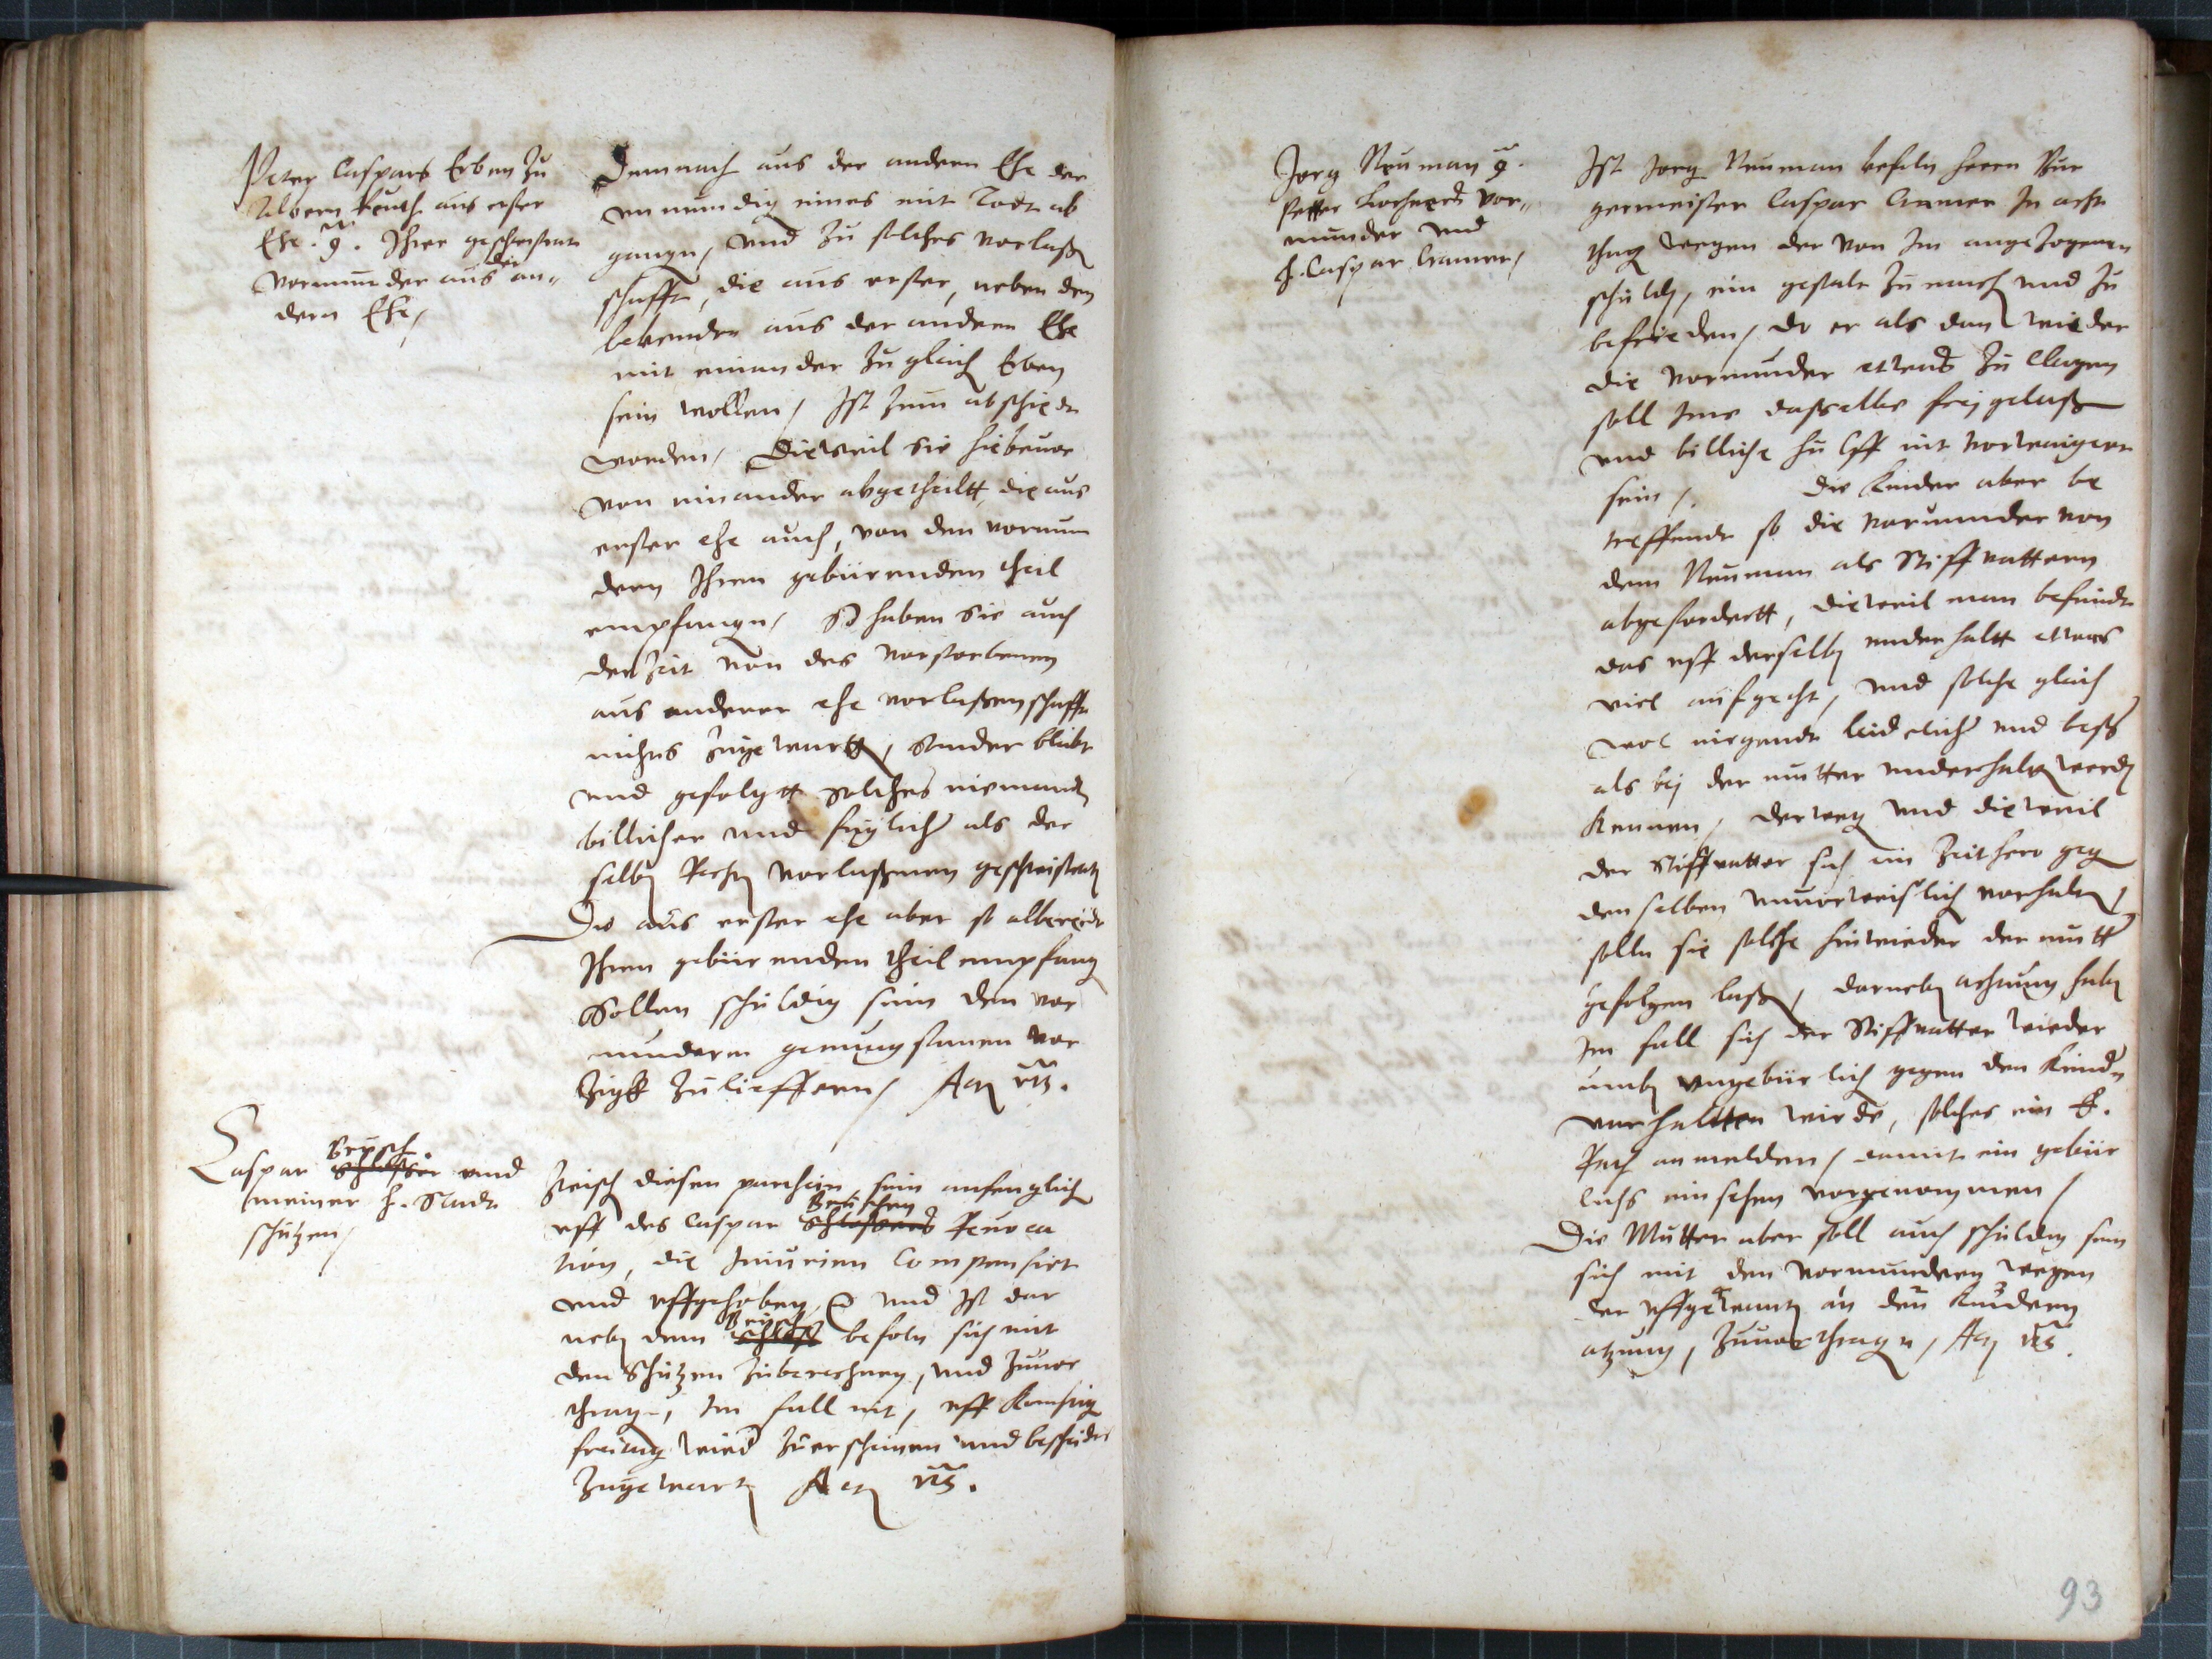 Peter Caspars Erben Zu
Albern Reuth aus erster
Ehe. g. Ihrer geschwistrett
vormunder aus der an„
dern Ehe,
Demnach aus der andern Ehe der
unmundig eines mit Todt ab
gangn, und zu solches vorlaß
schafft, die aus erster, neben den
lebenden aus der andern Ehe
mit einander zu gleich Erben
sein wollen, Ist zum abschiedt
worden, Dieweil sie hiebeuor
von einander abgetheiltt, die aus
erster ehe auch, von den vormun
dern Ihren gebürenden theil
empfangn, So haben sie auch
der Zeit von des vorstorbenen
aus anderer ehe vorlaßenschafft
nichts zugewartt, sonder bleibt
und gefolgtt solches niemandt
billicher und füglicher als der
selben Rechten vorlaßenen geschwistertt
Die aus erster ehe aber so albereidt
Ihren gebürenden theil empfang
Sollen schuldig sein den vor
mundern genungsamen vor
Zigk zu lieffern, Act uts.
Caspar Beusch. Schlosser und
meiner h. Stadt
schutzen,
Zwisch diesen partheien, sein anfenglich
uff des Caspar Beuschen Schlossers Reuoca
tion, die Iniurien Compensirt
und uffgehoben, und Ist dar
neben dem Beusch Schloss befoln sich mit
den Schützen zuberechnen, und zuuor
tragn, Im fall nit, uff kunftig
freitag wied zu erscheinen und bescheidts
zugewartn Act uts.
Jorg Neuman g.
Petter Vor„
munder und
h. Caspar Cramer,
Ist Jorg Neuman befoln herrn Bur
germeister Caspar Cramer In acht
thag wegen der von Im angezogenen
schuldt, ein gestalt zu mach und zu
befrieden, Do er als dan wieder
die vormunder etwas zu Clagen
soll Ime dasselbe freygelaß
und billiche hulff nit vorweigert
sein, Die Kinder aber be
treffendt so die vormunder von
dem Neuman als Stiffvattern
abgefordertt, dieweil man befindt
das uff derselben underhaltt etwas
viel aufgeht, und solche gleich
wol nirgendt leidelicher und besser
als bey der mutter underhalten werden
Kennen, derweg und dieweil
der Stiffvatter sich ein Zeithero geg
denselben unuorweislich vorhalten,
solln sie solche hinwieder der mutter
gefolgen laß, darneben achtung haben
Im fall sich der Stiffvatter wieder
umb ungebürlich gegen den Kindern
vorhaltten wirde, solches ein E.
Rath anmelden, damit ein gebür
lichs einsehen vorgenommen,
Die Mutter aber soll auch schuldig sein
sich mit den vormundern wegen
der uffgewantn an den Kindern
atzung, zuuorthragn, Act uts.
93